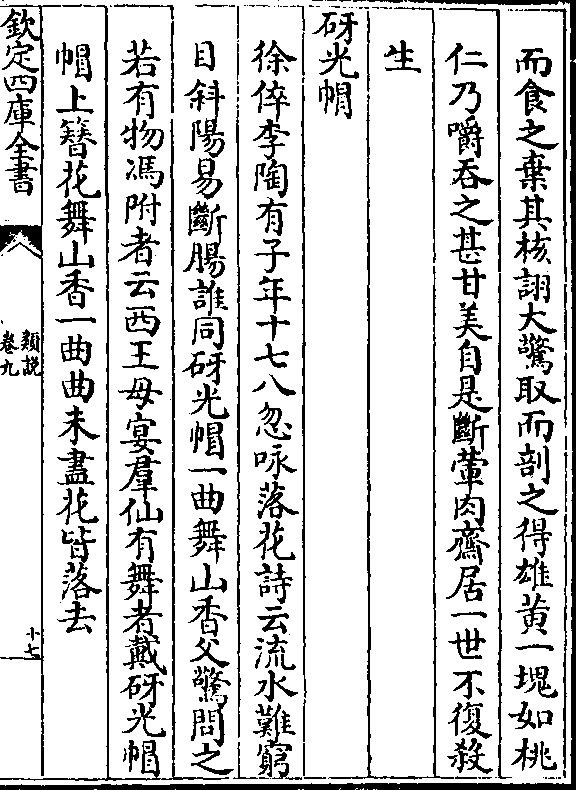 而食之棄其核詡大驚取而剖之得雄黄一塊如桃
仁乃嚼吞之甚甘美自是斷葷肉齋居一世不復殺
生
砑光帽
徐倅李陶有子年十七八忽咏落花詩云流水難窮
目斜陽易斷腸誰同砑光帽一曲舞山香父驚問之
若有物馮附者云西王母宴羣仙有舞者戴砑光帽
帽上簪花舞山香一曲曲未盡花皆落去
欽定四庫全書
類説
卷九
十七